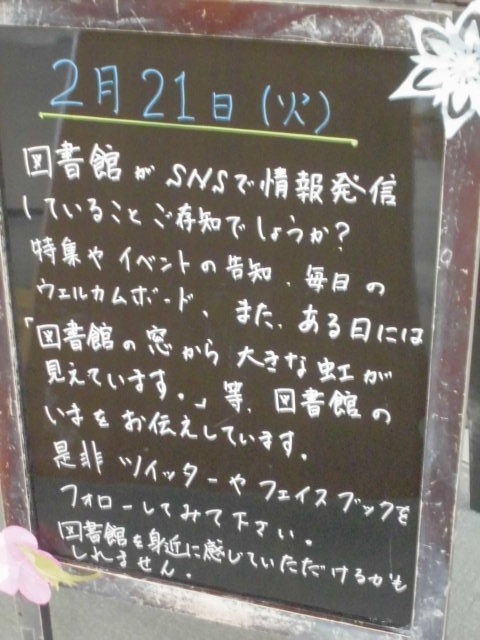 2月21日(火)
図書館がSNSで情報発信
していることご存知でしょうか?
特集やイベントの告知、毎日の
ウェルカムボード、また、ある日には
「図書館の窓から大きな虹が
見えています。」等、図書館の
いまをお伝えしています。
是非ツイッターやフェイスブックを
フォローしてみて下さい。
図書館を身近に感じていただけるかも
しれません。